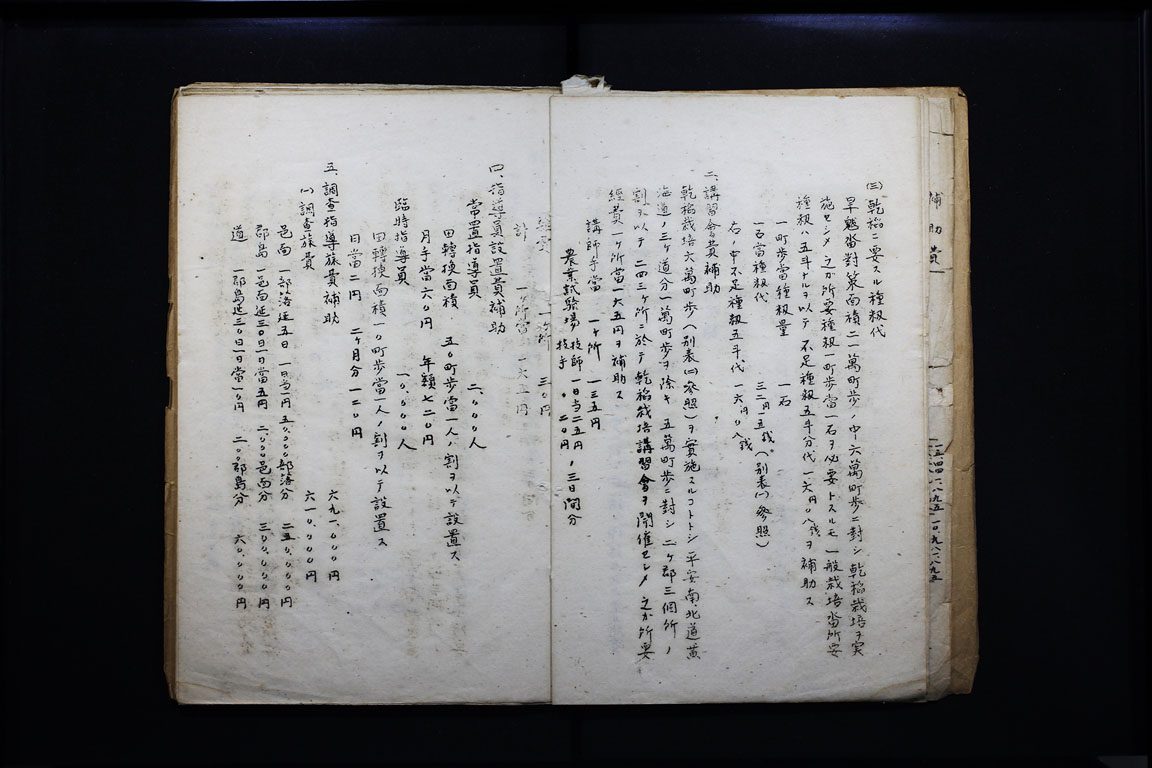 (三)乾稲ニ要スル種籾代
旱魃畓對策面積二一萬町歩ノ中六萬町歩ニ對シ乾稲栽培ヲ実
施セシメ之カ所要種籾一町歩當一石ヲ必要トスルモ一般栽培畓所要
種籾ハ五斗トルヲ以テ不足種籾五斗分代一六円〇八銭ヲ補助ス
一町歩當種籾量 一石
一石當種籾代 三二円一五銭(別表(一)参照)
右ノ中不足種籾五斗代 一六円〇八銭
二、講習會費補助
乾稲栽培六萬町歩(別表(二)参照)ヲ實施スルコトトシ平安南、北道黄
海道ノ三ケ道分一萬町歩ヲ除キ五萬町歩ニ對シ二ケ郡三個所ノ
割ヲ以テ二四三ケ所ニ於テ乾稲栽培講習會ヲ開催セシメ之カ所要
經費一ケ所當一六五円ヲ補助ス
講師手當 一ケ所 一三五円
農業試験場 技師 一日当二五円、三日間分
技手 〃 二〇円〃
三〇円
計 一ケ所當 一六五円
四、指導員設置費補助
常置指導員 二、〇〇〇人
田轉換面積 五〇町歩當一人ノ割ヲ以テ設置ス
月手當六〇円 年額七二〇円
臨時指導員 一〇、〇〇〇人
田轉換面積一〇町歩當一人ノ割ヲ以テ設置ス
日當二円 二ケ月分一二〇円
五、調査指導旅費補助 六九一、〇〇〇円
(一)調査旅費 六一〇、〇〇〇円
邑面 一部落延五日 一日当一円 五〇、〇〇〇部落分 二五〇、〇〇〇円
郡島 一邑面延三〇日一日當五円 二、〇〇〇邑面分 三〇〇、〇〇〇円
道 一郡島延三〇日一日當一〇円 二〇〇郡島分 六〇、〇〇〇円
補助費